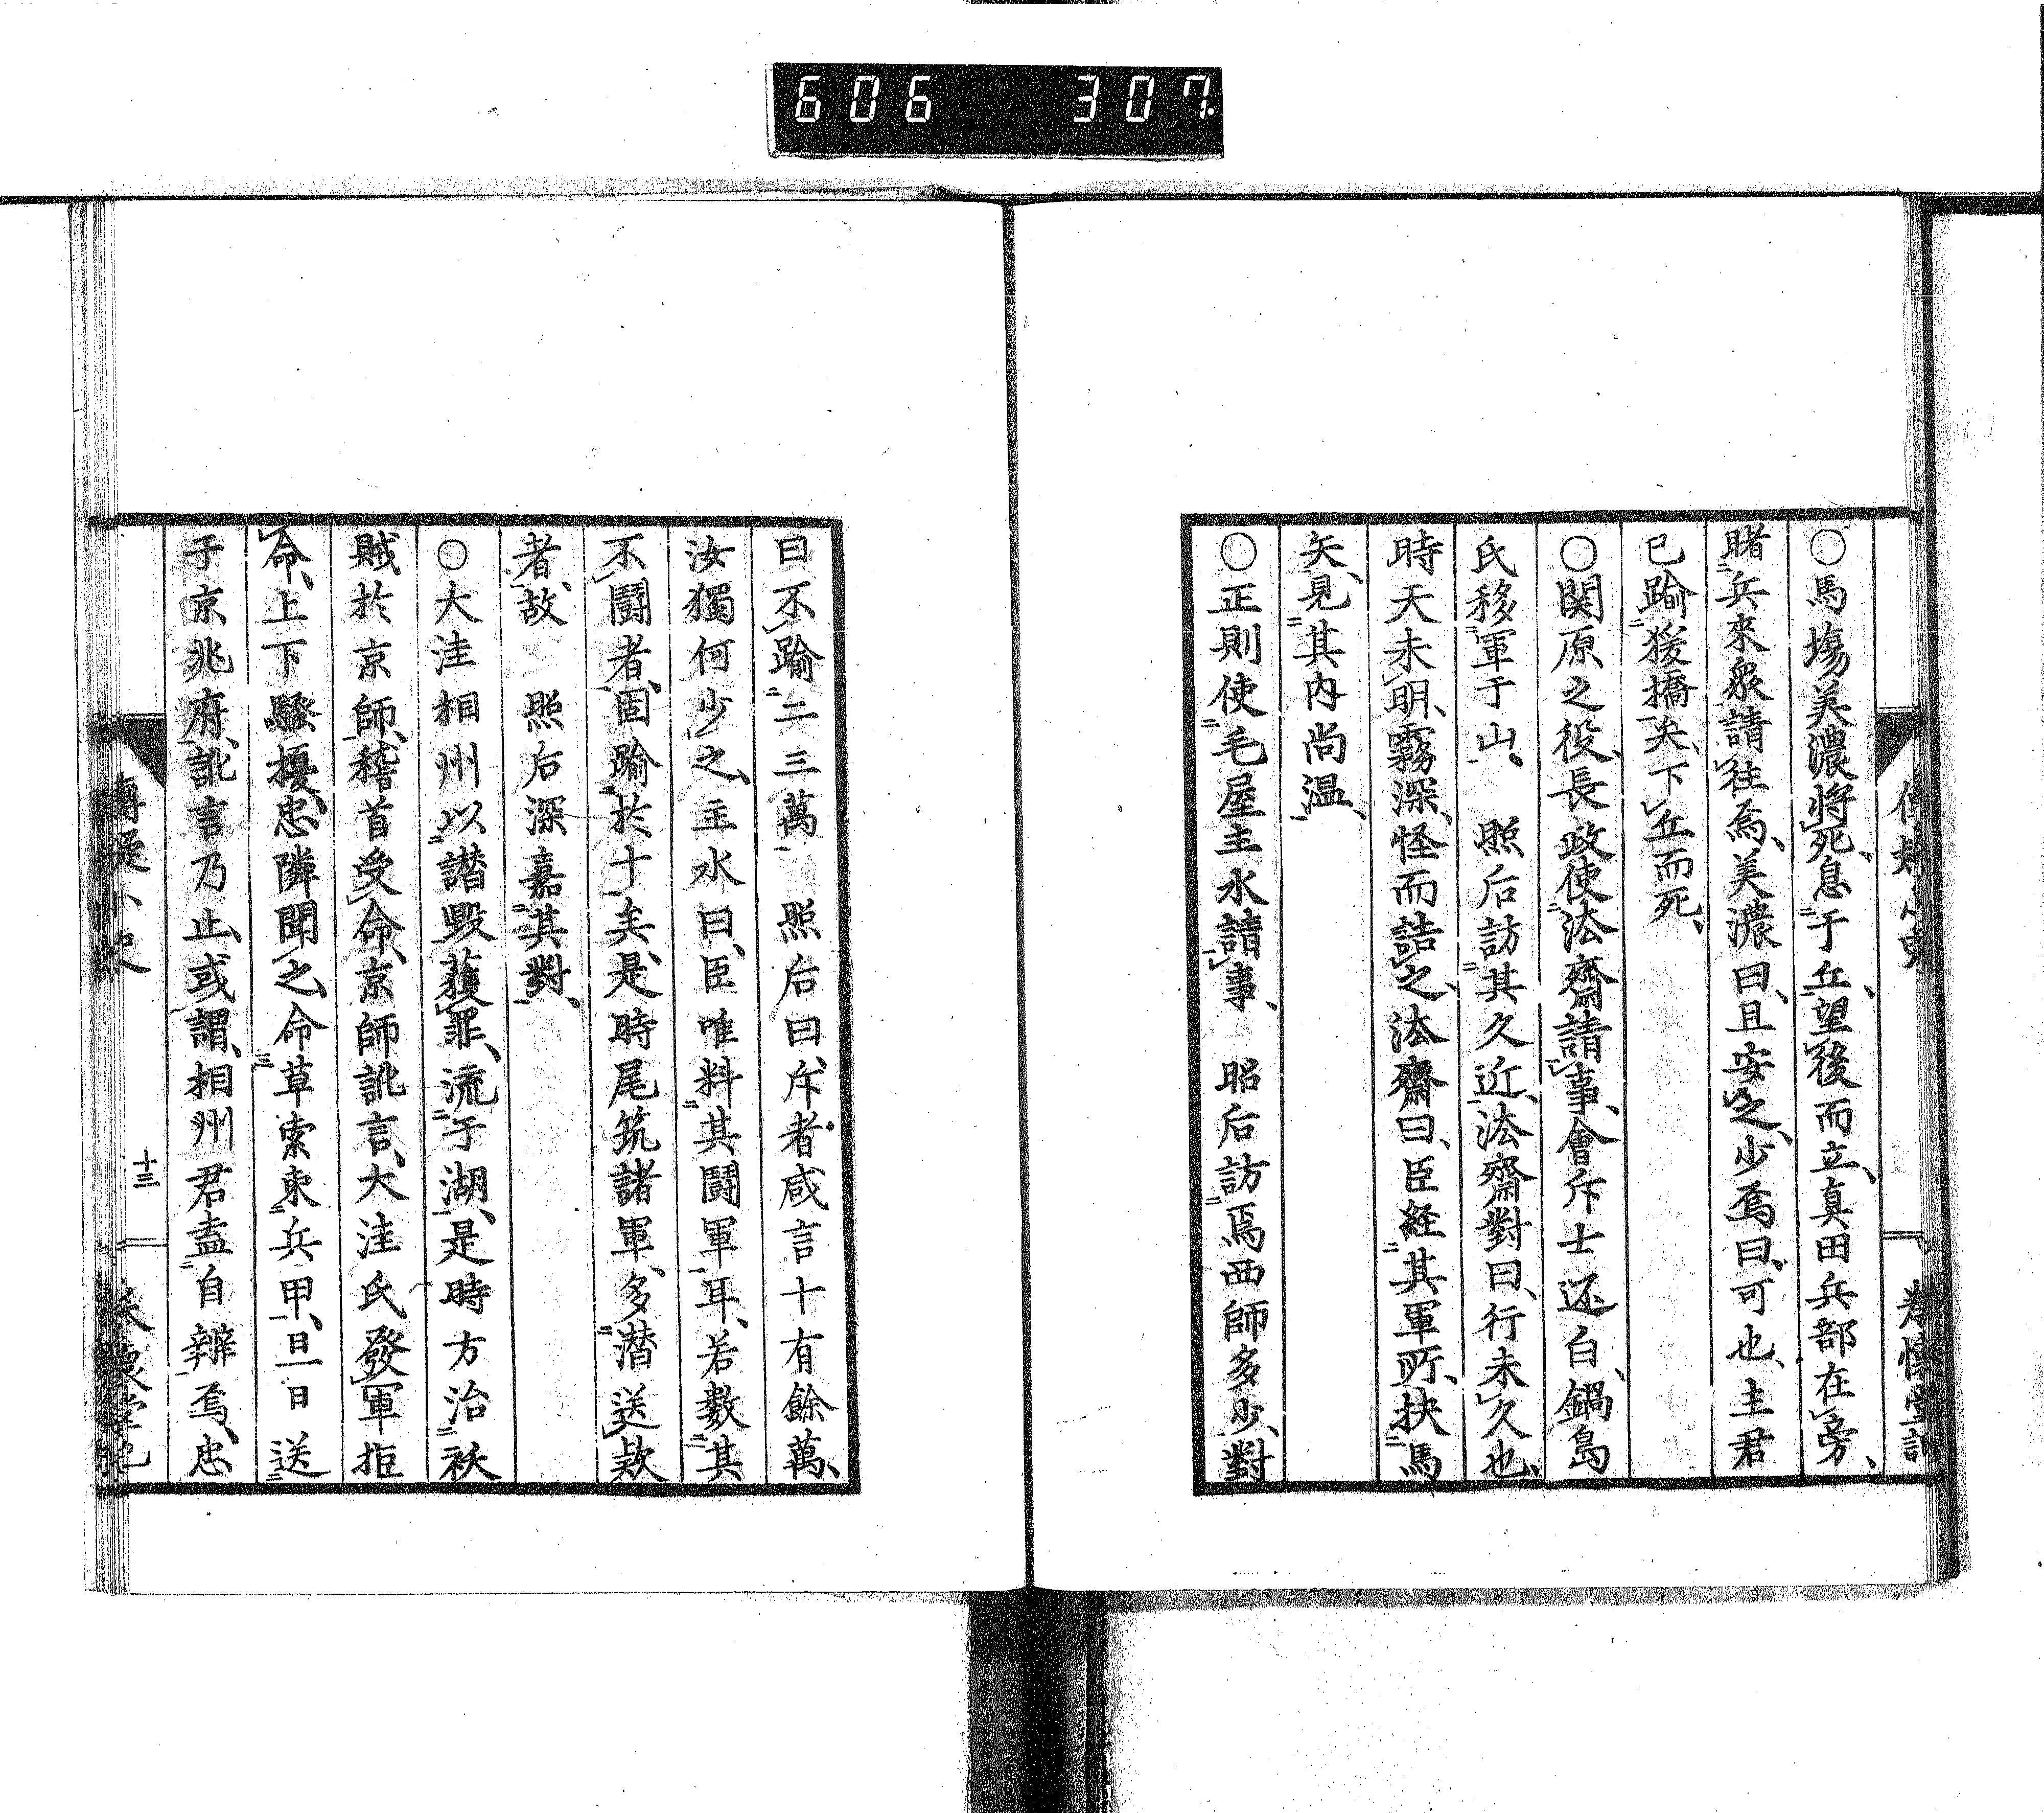 606 307
○馬塲美濃將死、息于丘、望後而立、真田兵部在旁、
睹兵來衆請往焉、美濃曰、且安之、少焉曰、可也、主君
已踰猨橋矣、下丘而死、
○関原之役、長政使㳒齋請事、會斥士还白、鍋島
氏移軍于山、照后訪其久近、㳒齋對曰、行未久也、
時天未明、霧深、怪而詰之、㳒齋曰、臣経其軍所、抉馬
矢、見其内尚温、
○正則使毛屋主水請事、昭后訪焉西師多少、對
曰不踰二三萬、照后曰、斥者咸言十有餘萬、
汝獨何少之、主水曰、臣唯料其鬪軍耳、若數其
不鬪者、固踰於十矣、是時尾筑諸軍、多潜送款
者、故照后深嘉其對、
○大洼相州以譖毀獲罪、流于湖、是時方治祅
賊於京師、稽首受命、京師訛言、大洼氏發軍拒
命、上下騷擾、忠隣聞之、命草索束兵甲、旦一日送
于京兆府、訛言乃止、或謂、相州君盍自辨焉、忠
十三